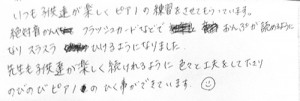 いつも子供達が楽しくピアノの練習をさせてもらています。
絶対音かんやフラッシュカードなどで おんぷが読めるように
なり スラスラ ひけるようになりました。
先生も子供達が楽しく続けれるように色々と工夫をしてたり
のびのびピアノのひく事ができています。